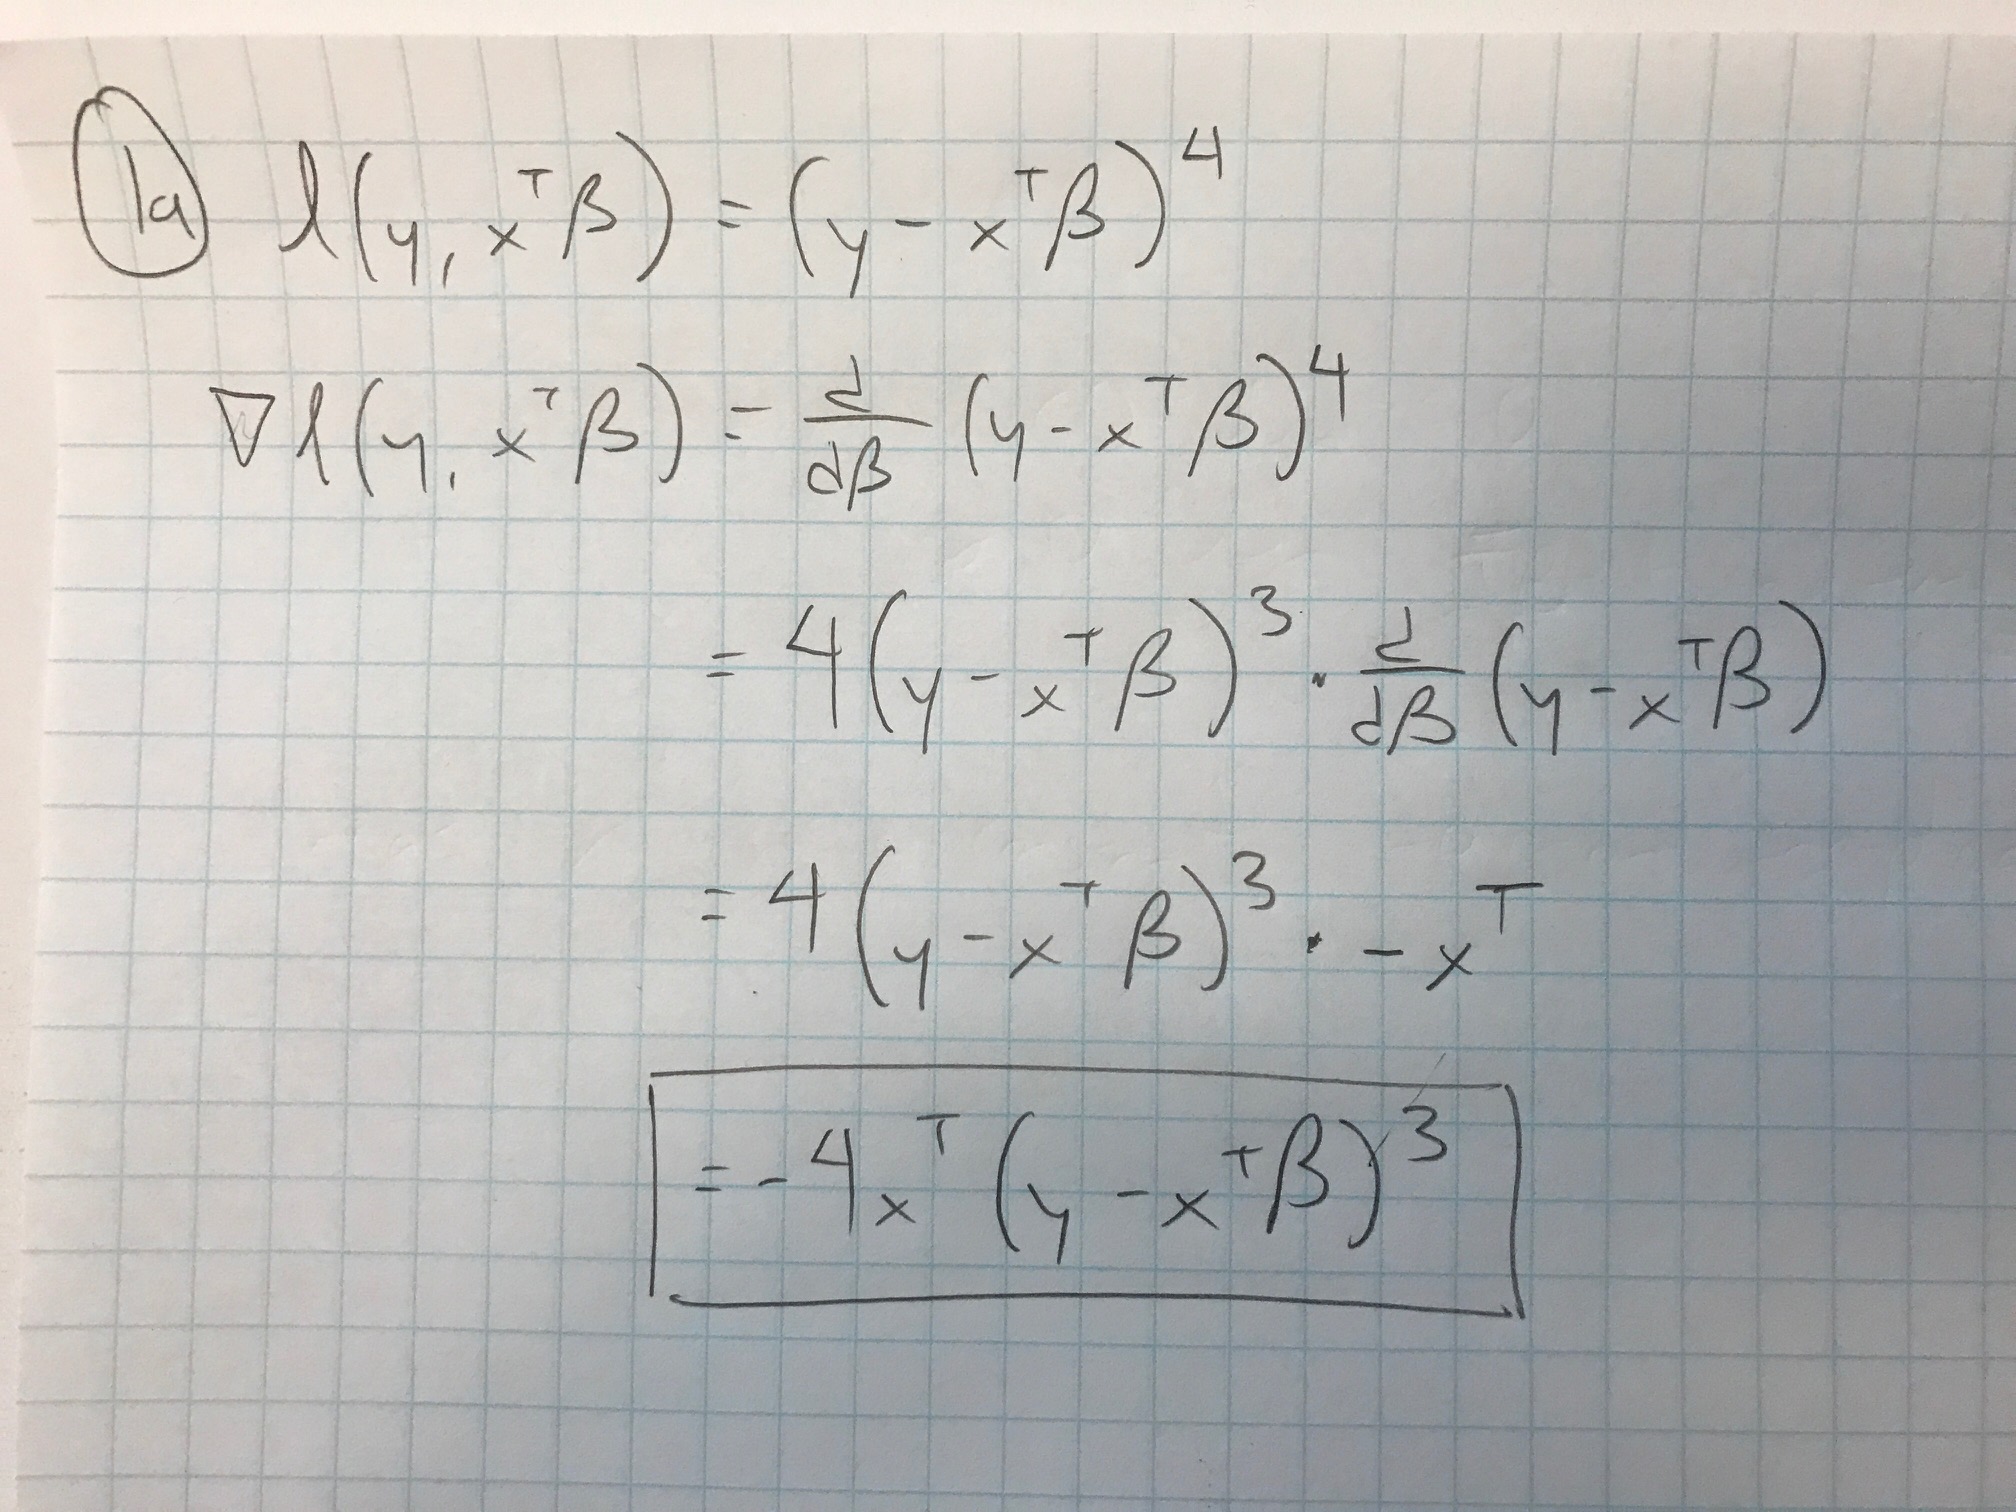 1a l(y, xᵀβ) = (y - xᵀβ)⁴
∇l(y, xᵀβ) = d/dβ (y - xᵀβ)⁴
= 4(y - xᵀβ)³ · d/dβ (y - xᵀβ)
= 4(y - xᵀβ)³ · -xᵀ
= -4xᵀ(y - xᵀβ)³